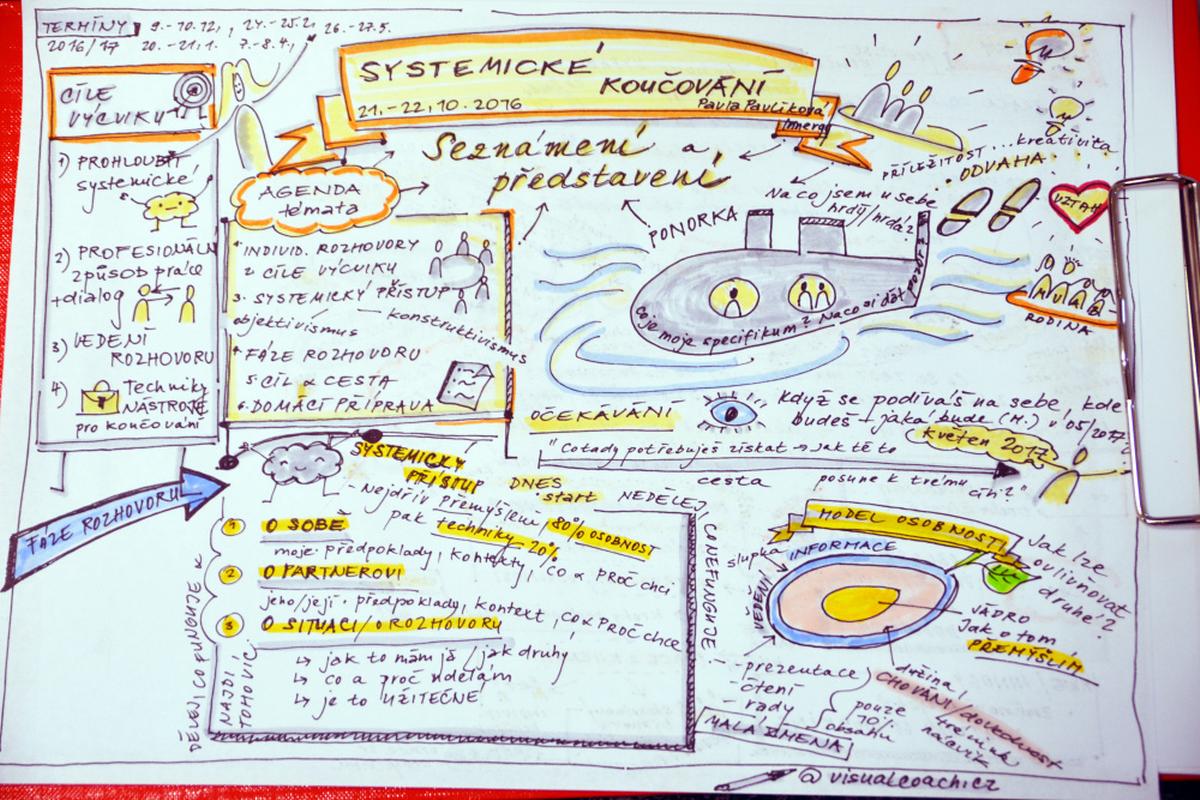 TERMÍNY 9.-10.12., 24.-25.2. 26.-27.5.
2016/17 20.-21.1. 7.-8.4.,
CÍLE
VÝCVIKU
SYSTEMICKÉ
KOUČOVÁNÍ
21.-22.10.2016
Pavla Pavlíková
Innergy
1) PROHLOUBIT
systemické
2) PROFESIONÁLN
způsob práce
+ dialog
3) VEDENÍ
ROZHOVORU
4) Techniky
NÁSTROJE
pro koučování
AGENDA
témata
1. INDIVID. ROZHOVORY
2 CÍLE VÝCVIKU
3. SYSTEMICKÝ PŘÍSTUP
objektivismus — konstruktivismus
4 FÁZE ROZHOVORU
5. CÍL & CESTA
6. DOMÁCÍ PŘÍPRAVA
Seznámení a
představení
PONORKA
Na co jsem u sebe
hrdý/hrdá?
Co je moje specifikum? Na co si dát pozor
PŘÍLEŽITOST ... kreativita
• ODVAHA
VZTAH
RODINA
OČEKÁVÁNÍ
Když se podíváš na sebe, kde
budeš + jaká bude (M.) v 05/2017?
Květen 2017
"Co tady potřebuješ získat → jak tě to
posune k tvému
cíli?"
DNES
start
cesta
FÁZE ROZHOVORU
SYSTEMICKÝ
PŘÍSTUP
- Nejdřív přemýšlení 80% OSOBNOST
pak techniky 20%
1 O SOBĚ
moje předpoklady, kontexty, co & PROČ chci
2 O PARTNEROVI
jeho/její předpoklady, kontext, co & PROČ chce
3 O SITUACI / O ROZHOVORU
↳ jak to mám já / jak druhý
↳ co a proč udělám
↳ je to UŽITEČNÉ
DĚLEJ CO FUNGUJE &
NAJDI TOHO VÍC
NEDĚLEJ,
CO NEFUNGUJE
MODEL OSOBNOSTI
slupka
INFORMACE
VĚDĚNÍ
Jak lze
ovlivňovat
druhé?
JÁDRO
Jak o tom
PŘEMÝŠLÍM
- prezentace
- čtení
- rady
MALÁ ZMĚNA
pouze
10%
obsahu
dužina,
CHOVÁNÍ/dovednost
trénink
nácvik
@visualcoachcz